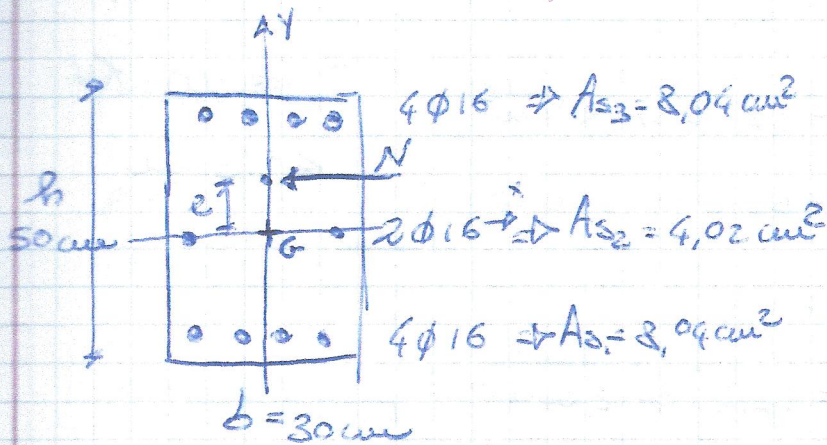 Y
4ϕ16 ⇒ As3 = 8,04 cm²
N
e
h
50 cm
G
x
2ϕ16 ⇒ As2 = 4,02 cm²
4ϕ16 ⇒ As1 = 8,04 cm²
b = 30 cm